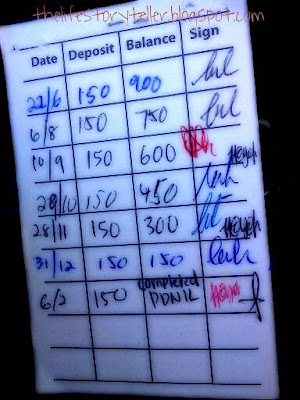 thelifestoryteller.blogspot.com
Date Deposit Balance Sign
22/6 150 900
6/8 150 750
10/9 150 600
28/10 150 450
28/11 150 300
31/12 150 150
6/2 150 completed